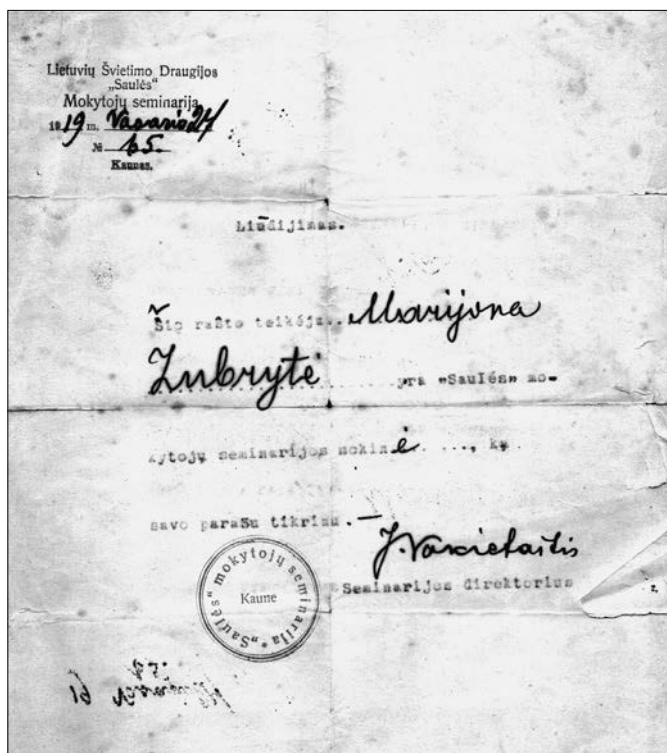 Lietuvių Švietimo Draugijos
„Saulės"
Mokytojų seminarija
1919 m. Vasario 24
№ 65.
Kaunas.
Liūdijimas.
Šio rašto teikėja... Marijona
Zubrytė ........ yra „Saulės" mo-
kytojų seminarijos mokinė....., ką
savo parašu tikrinu.—
J. Vaxietaitis
Seminarijos direktorius
„Saulės" mokytojų seminarija
Kaune